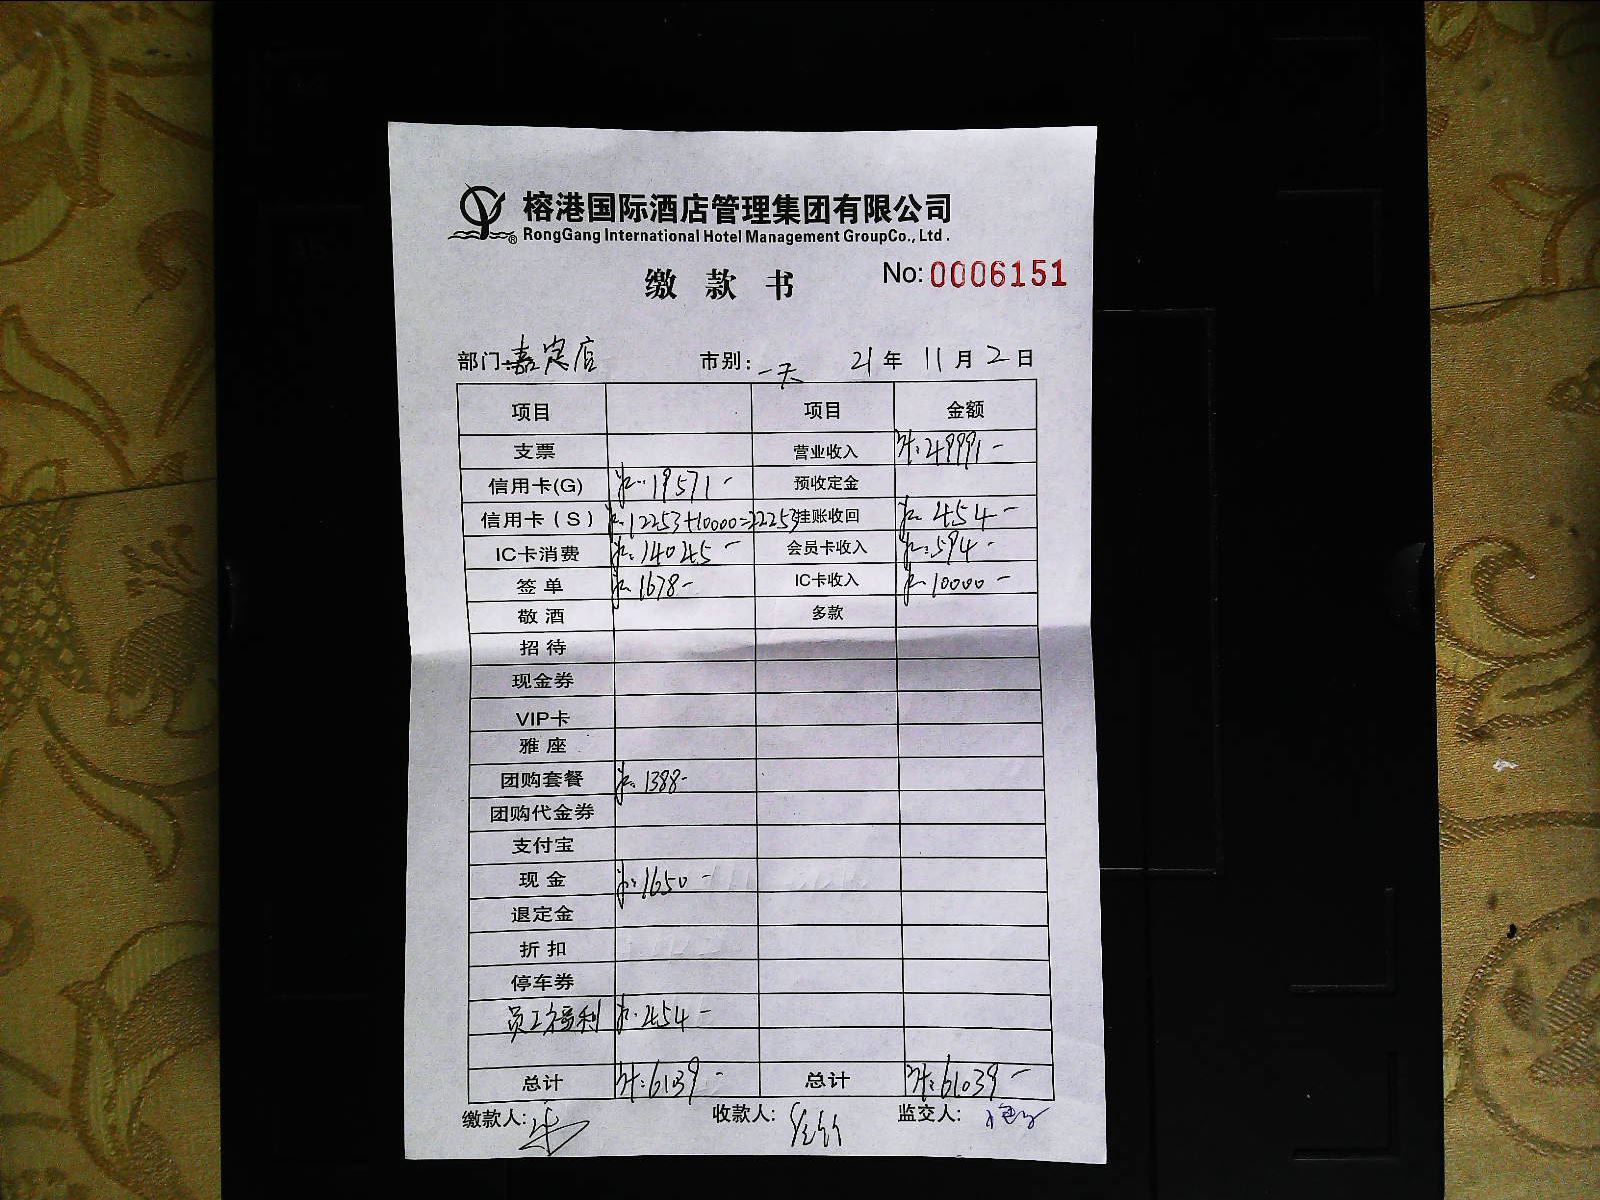 榕港国际酒店管理集团有限公司
RongGang International Hotel Management GroupCo., Ltd .
缴 款 书
No: 0006151
部门: 嘉定店 市别: 一天 21 年 11 月 2 日
项目 项目 金额
支票 营业收入 计: 49991-
信用卡(G) 19571- 预收定金
信用卡(S) 12253+10000=22253 挂账收回 454-
IC卡消费 14045- 会员卡收入 594-
签 单 1678- IC卡收入 10000-
敬 酒 多款
招 待
现金券
VIP卡
雅 座
团购套餐 1388-
团购代金券
支付宝
现 金 1650-
退定金
折 扣
停车券
员工福利 454-
总计 计: 61039- 总计 计: 61039-
缴款人: 收款人: 监交人: